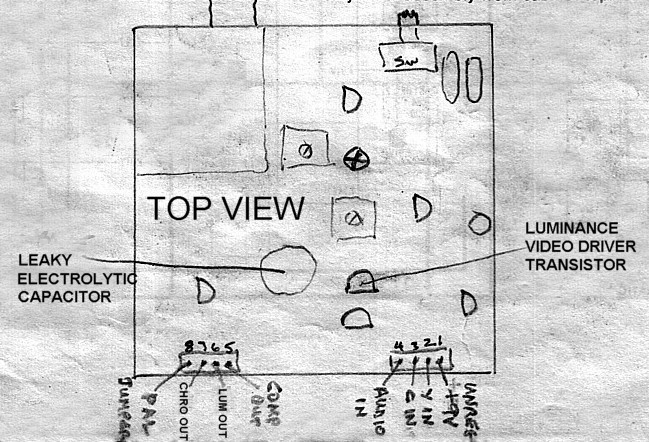 SW
TOP VIEW
LEAKY
ELECTROLYTIC
CAPACITOR
LUMINANCE
VIDEO DRIVER
TRANSISTOR
8 7 6 5
4 3 2 1
JUMPER
PAL
CHRO OUT
LUM OUT
COMP
OUT
AUDIO
IN
C IN
Y IN
+9V
UNREG